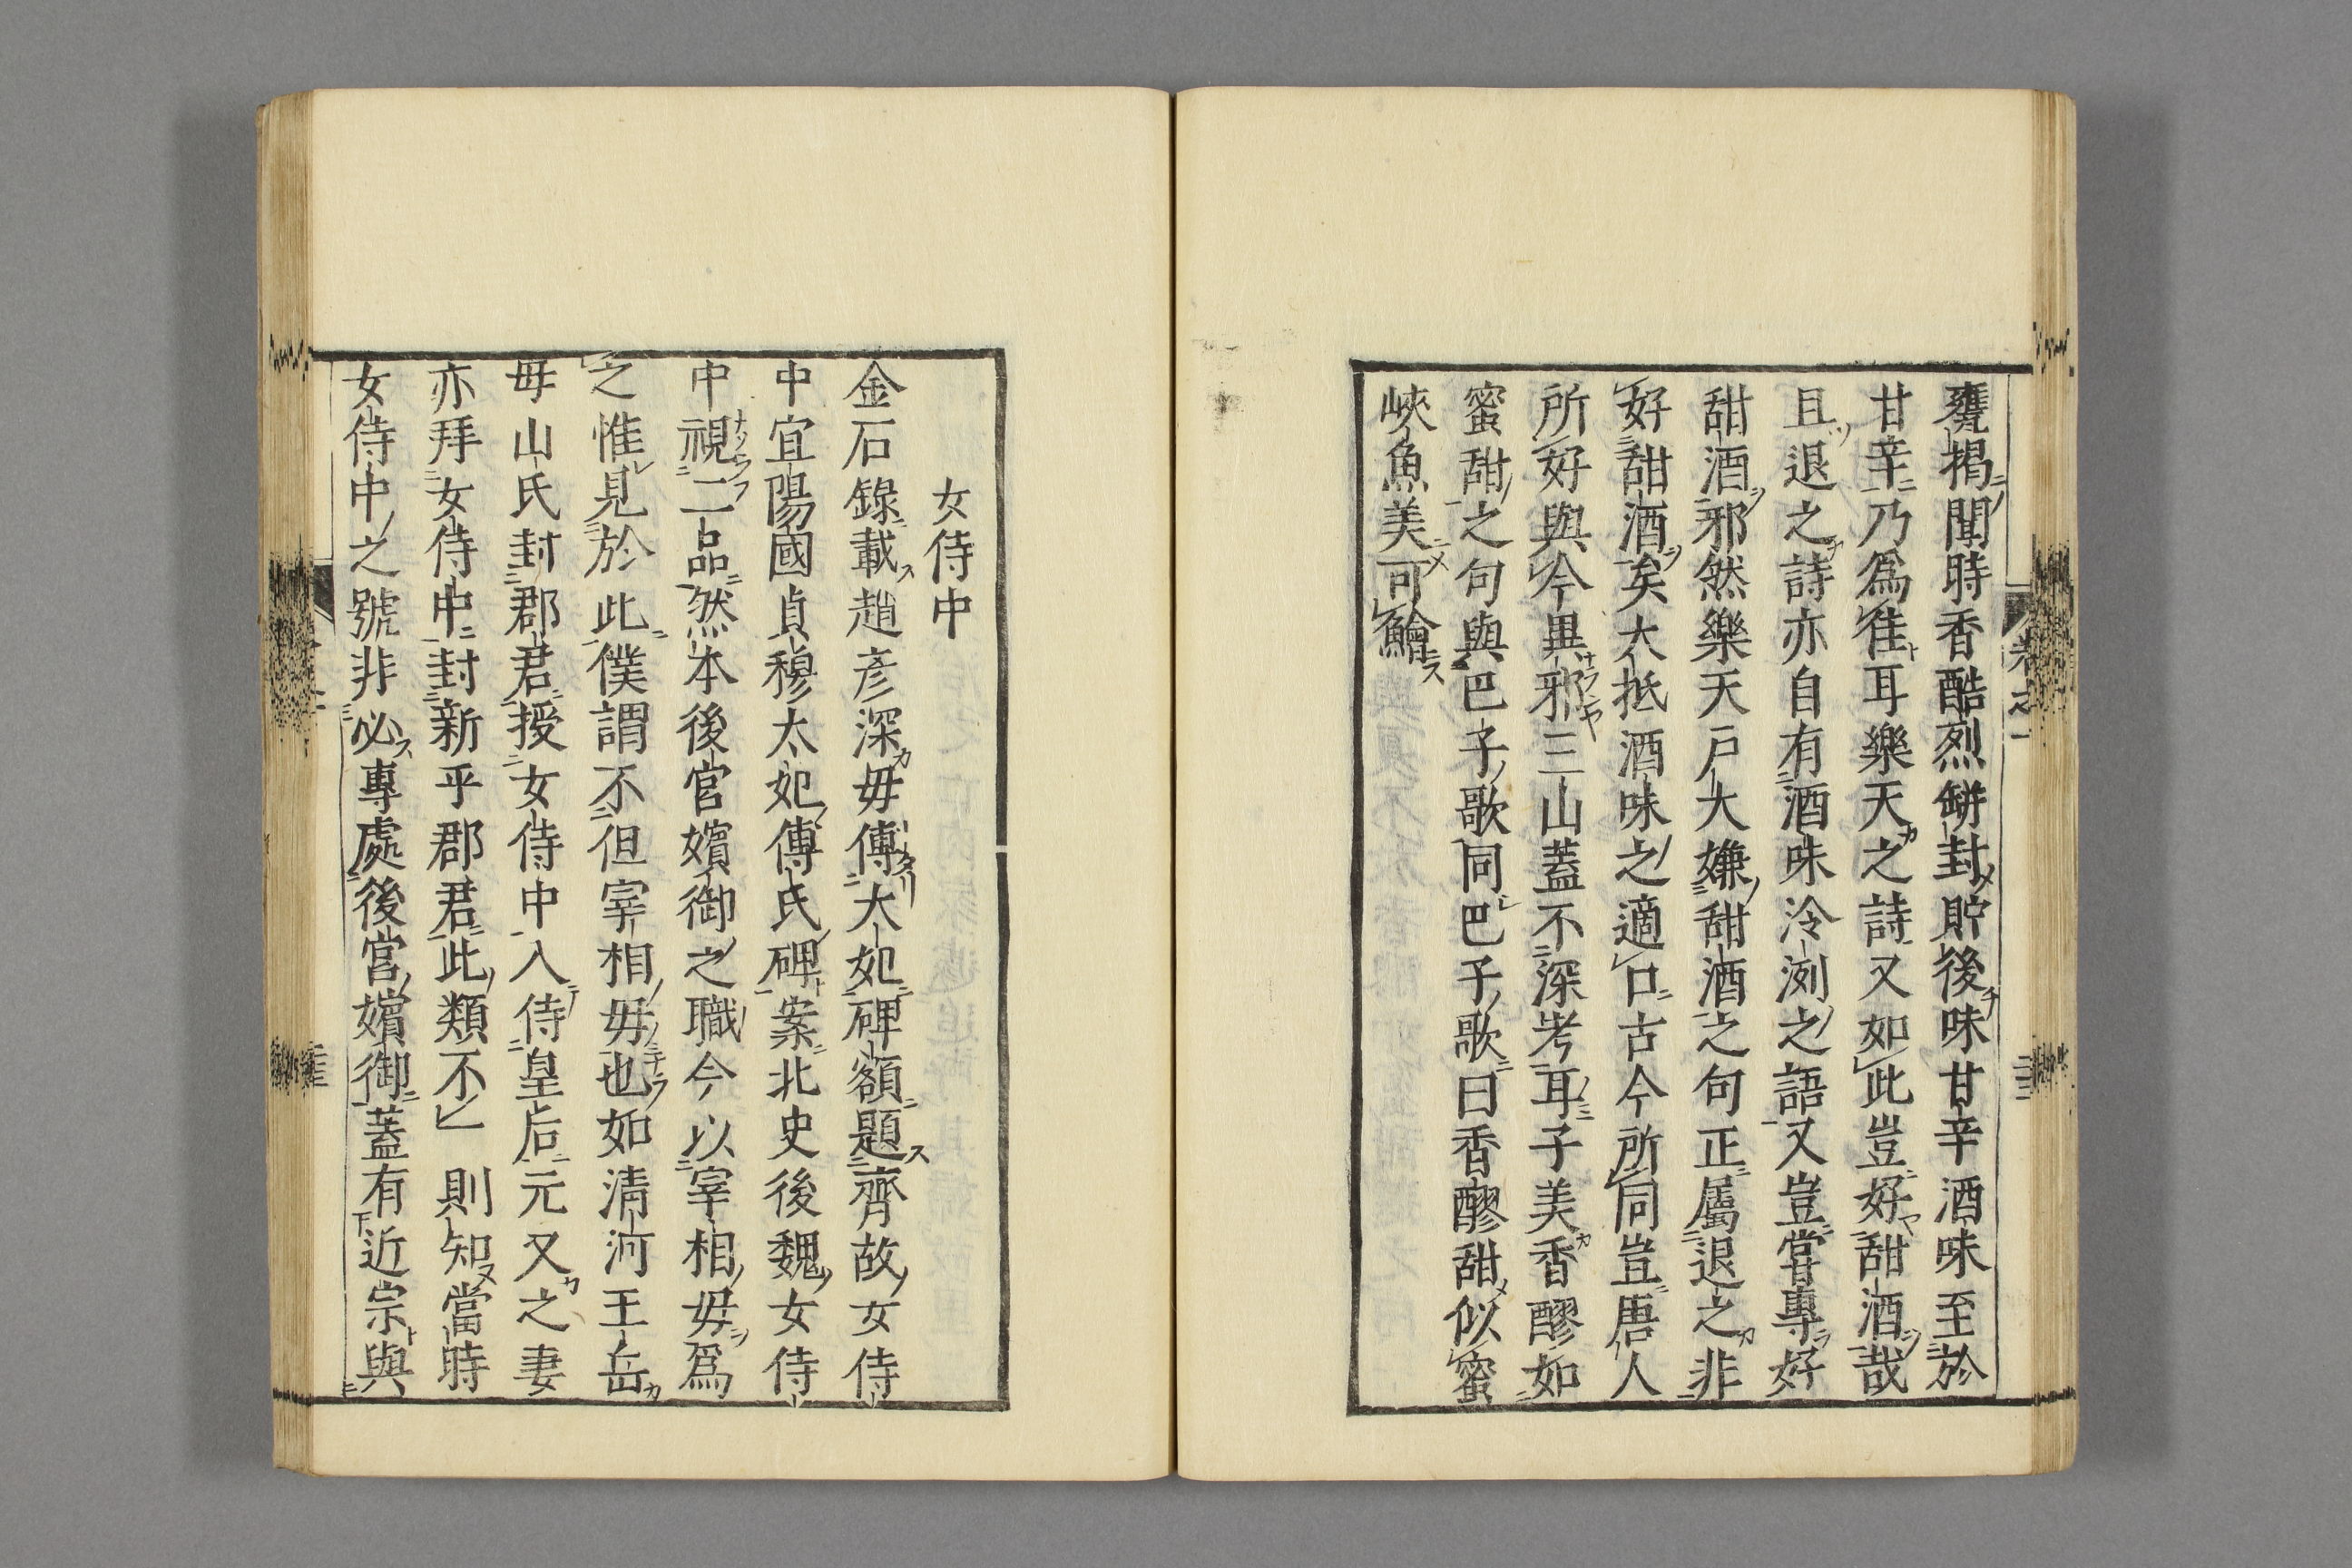 甕揭聞時香酷烈缾封貯後味甘辛酒味至於
甘辛乃爲佳耳樂天之詩又如此豈好甜酒哉
且退之詩亦自有酒味泠洌之語又豈嘗專好
甜酒邪然樂天戸大嫌甜酒之句正屬退之非
好甜酒矣大抵酒味之適口古今所同豈唐人
所好與今異邪三山蓋不深考耳子美香醪如
蜜甜之句與巴子歌同巴子歌曰香醪甜似蜜
峽魚美可鱠
女侍中
金石錄載趙彦深母傅大妃碑額題齊故女侍
中宜陽國貞穆太妃傅氏碑案北史後魏女侍
中視二品然本後宮嬪御之職今以宰相母爲
之惟見於此僕謂不但宰相母也如淸河王岳
母山氏封郡君授女侍中入侍皇后元叉之妻
亦拜女侍中封新乎郡君此類不一則知當時
女侍中之號非必專處後宮嬪御蓋有近宗與